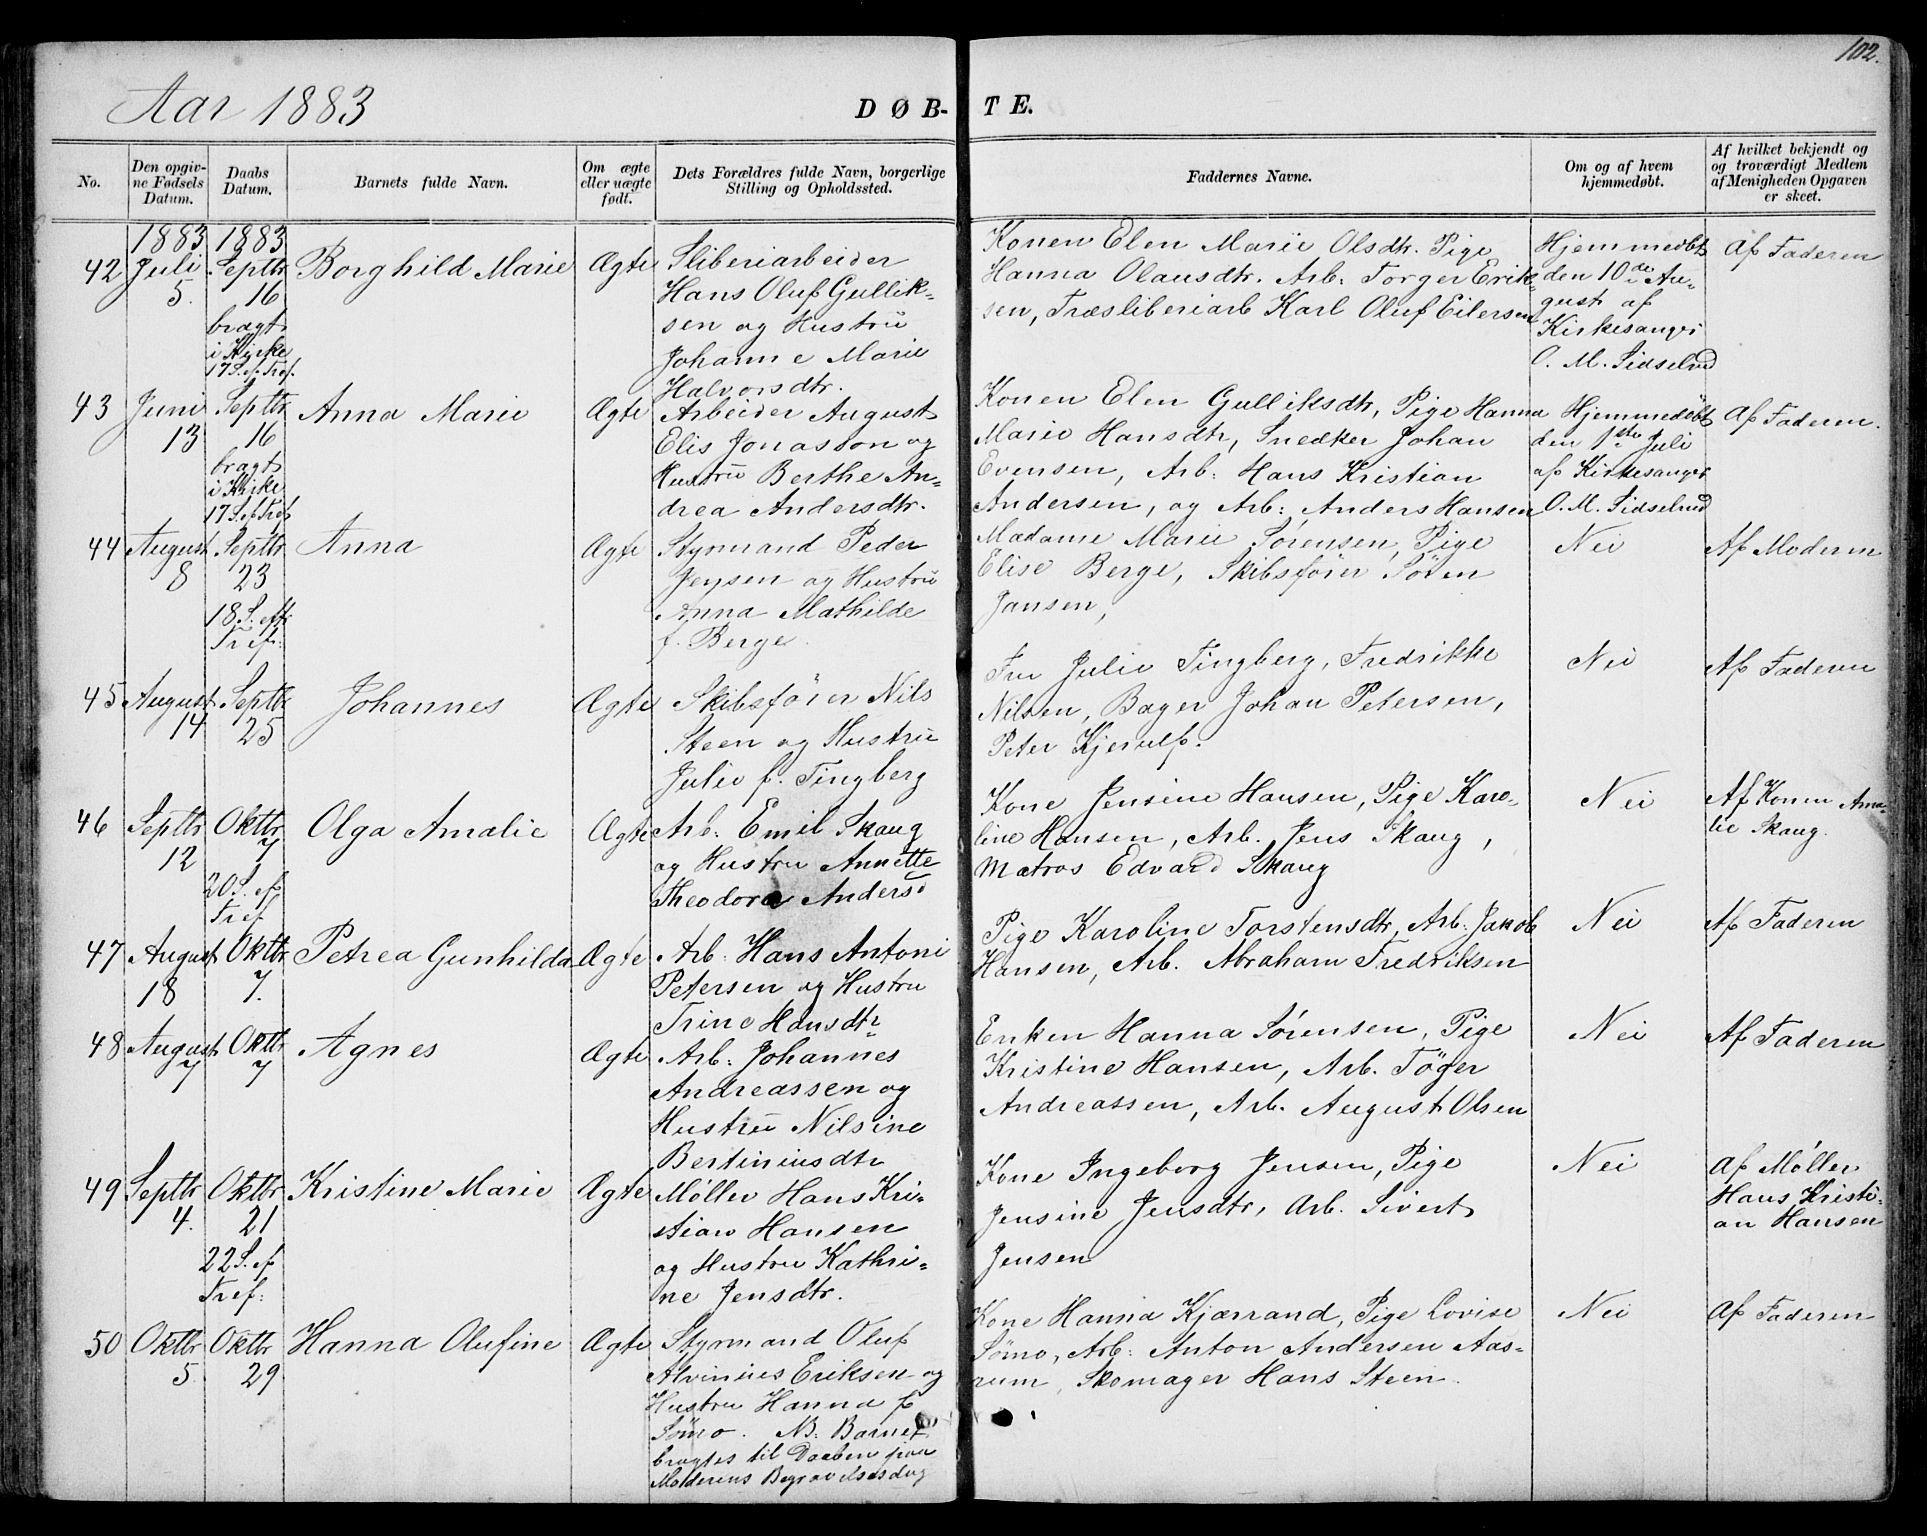 102.
Aar 1883
DØB-TE.
No.
Den opgiv-
ne Fødsels
Datum.
Daabs
Datum.
Barnets fulde Navn.
Om ægte
eller uægte
født.
Dets Forældres fulde Navn, borgerlige
Stilling og Opholdssted.
Faddernes Navne.
Om og af hvem
hjemmedøbt.
Af hvilket bekjendt og
og troværdigt Medlem
af Menigheden Opgaven
er skeet.
42
1883
Juli
5.
1883
Septbr
16
bragt
i Kirke
17 S. ef. Tref.
Borghild Marie
Ægte
Sliberiarbeider
Hans Oluf Gullik-
sen og Hustru
Johanne Marie
Halvorsdtr.
Konen Elen Marie Olsdtr. Pige
Hanna Olausdtr. Arb: Torger Erik-
sen, Træsliberiarb Karl Oluf Eilersen
Hjemmedøbt
den 10de Au-
gust af
Kirkesanger
O. M. Sidselrud
Af Faderen
43
Juni
13
Septbr
16
bragt
i Kirke
17 S. ef Tref
Anna Marie
Ægte
Arbeider August
Elis Jonasson og
Hustru Berthe An-
drea Andersdtr.
Konen Elen Gulliksdtr, Pige Hanna
Marie Hansdtr, Snedker Johan
Evensen, Arb: Hans Kristian
Andersen, og Arb: Anders Hansen
Hjemmedøbt
den 1ste Juli
af Kirkesanger
O. M. Sidselrud
Af Faderen.
44
August
8
Septbr
23
18 S. eft.
Tref:
Anna
Ægte
Styrmand Peder
Jensen og Hustru
Anna Mathilde
f. Berge.
Madame Marie Sørensen, Pige
Elise Berge, Skibsfører Søren
Jansen,
Nei
Af Moderen
45
August
14
Septbr
25
Johannes
Ægte
Skibsfører Nils
Steen og Hustru
Julie f. Tingberg
Fru Julie Tingberg, Fredrikke
Nilsen, Bager Johan Petersen,
Peter Kjerulf.
Nei
Af Faderen
46
Septbr
12
Oktbr
7
20 S. ef
Tref
Olga Amalie
Ægte
Arb: Emil Skaug
og Hustru Annette
Theodora Andersd
Kone Jensine Hansen, Pige Karo-
line Hansen, Arb. Jens Skaug,
Matros Edvard Skaug
Nei
Af Konen Ama-
lie Skaug.
47
August
18
Oktbr
7.
Petrea Gunhilda
Ægte
Arb: Hans Antoni
Petersen og Hustru
Trine Hansdtr
Pige Karoline Torstensdtr, Arb: Jakob
Hansen, Arb. Abraham Fredriksen
Nei
Af Faderen
48
August
7
Oktbr
7
Agnes
Ægte
Arb: Johannes
Andreassen og
Hustru Nilsine
Bertiniusdtr
Enken Hanna Sørensen, Pige
Kristine Hansen, Arb. Tøger
Andreassen, Arb. August Olsen
Nei
Af Faderen
49
Septbr
4.
Oktbr
21
22 S. ef
Tref:
Kristine Marie
Ægte
Møller Hans Kri-
stian Hansen
og Hustru Kathri-
ne Jensdtr.
Kone Ingeborg Jensen, Pige
Jensine Jensdtr, Arb. Sivert
Jensen
Nei
Af Møller
Hans Kristi-
an Hansen
50
Oktbr
5
Oktbr
29
Hanna Olufine
Ægte
Styrmand Oluf
Alvinius Eriksen og
Hustru Hanna f
Sømo. NB: Barnet
bragtes til Daaben paa
Moderens Begravelsesdag
Kone Hanna Kjærrand, Pige Lovise
Sømo, Arb: Anton Andersen Aas-
rum, Skomager Hans Steen.
Nei
Af Faderen